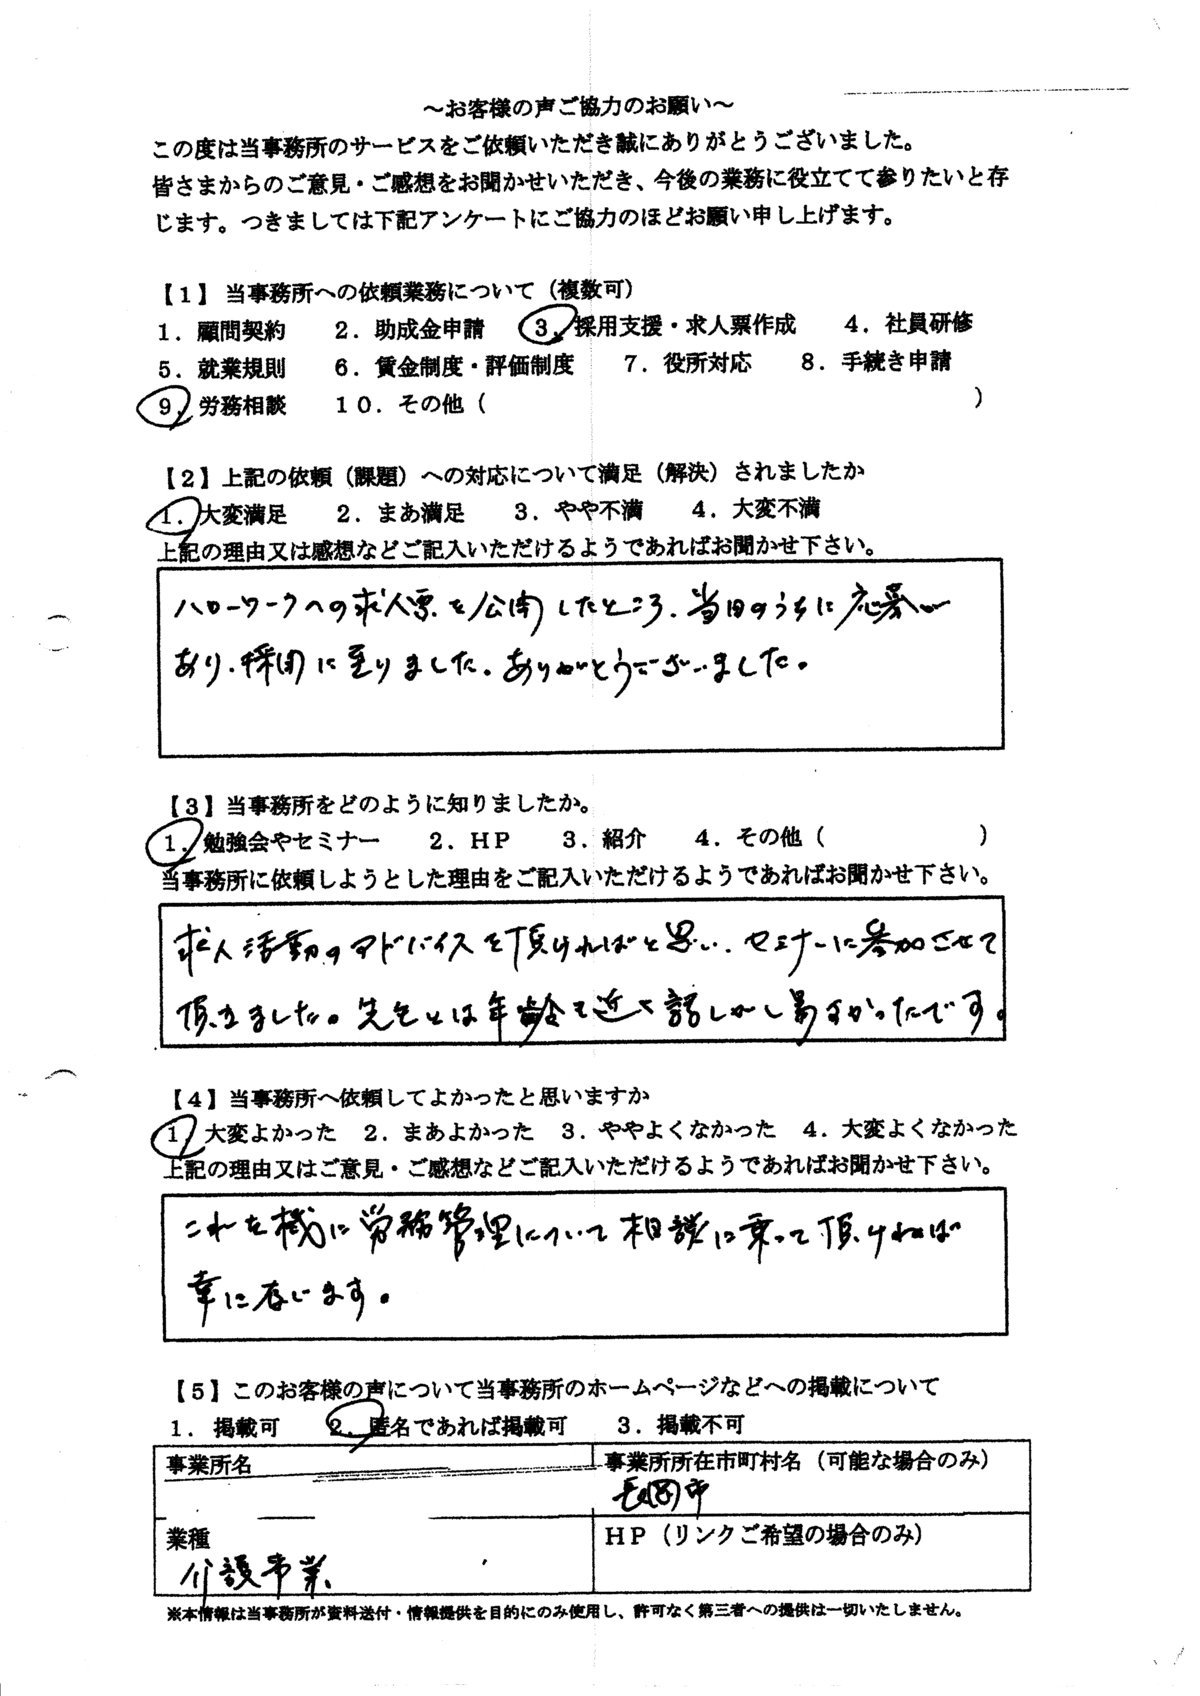 ～お客様の声ご協力のお願い～
この度は当事務所のサービスをご依頼いただき誠にありがとうございました。
皆さまからのご意見・ご感想をお聞かせいただき、今後の業務に役立てて参りたいと存
じます。つきましては下記アンケートにご協力のほどお願い申し上げます。
【１】当事務所への依頼業務について（複数可）
１．顧問契約　２．助成金申請　３．採用支援・求人票作成　４．社員研修
５．就業規則　６．賃金制度・評価制度　７．役所対応　８．手続き申請
９．労務相談　１０．その他（　　　）
【２】上記の依頼（課題）への対応について満足（解決）されましたか
１．大変満足　２．まあ満足　３．やや不満　４．大変不満
上記の理由又は感想などご記入いただけるようであればお聞かせ下さい。
ハローワークへの求人票を公開したところ、当日のうちに応募が
あり、採用に至りました。ありがとうございました。
【３】当事務所をどのように知りましたか。
１．勉強会やセミナー　２．ＨＰ　３．紹介　４．その他（　　　）
当事務所に依頼しようとした理由をご記入いただけるようであればお聞かせ下さい。
求人活動のアドバイスを頂ければと思い、セミナーに参加させて
頂きました。先生とは年齢も近く話しかけし易すかったです。
【４】当事務所へ依頼してよかったと思いますか
１．大変よかった　２．まあよかった　３．ややよくなかった　４．大変よくなかった
上記の理由又はご意見・ご感想などご記入いただけるようであればお聞かせ下さい。
これを機に労務管理について相談に乗って頂ければ
幸に存じます。
【５】このお客様の声について当事務所のホームページなどへの掲載について
１．掲載可　２．匿名であれば掲載可　３．掲載不可
事業所名　事業所所在市町村名（可能な場合のみ）
長岡市
業種　ＨＰ（リンクご希望の場合のみ）
介護事業
※本情報は当事務所が資料送付・情報提供を目的にのみ使用し、許可なく第三者への提供は一切いたしません。